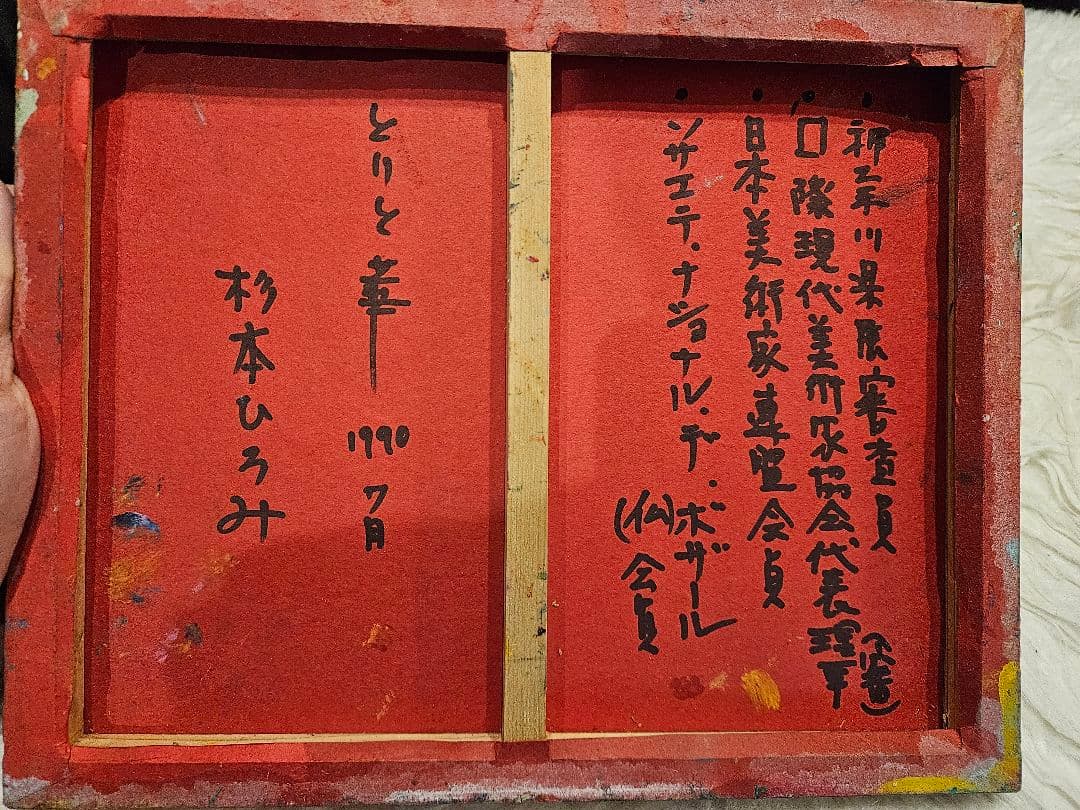 ・神奈川県展審査員
・国際現代美術家協会代表理事(審)
・日本美術家連盟会員
・ソサエテ・ナショナル・デ・ボザール
(仏)会員
とりと
1990 7月
杉本ひろみ